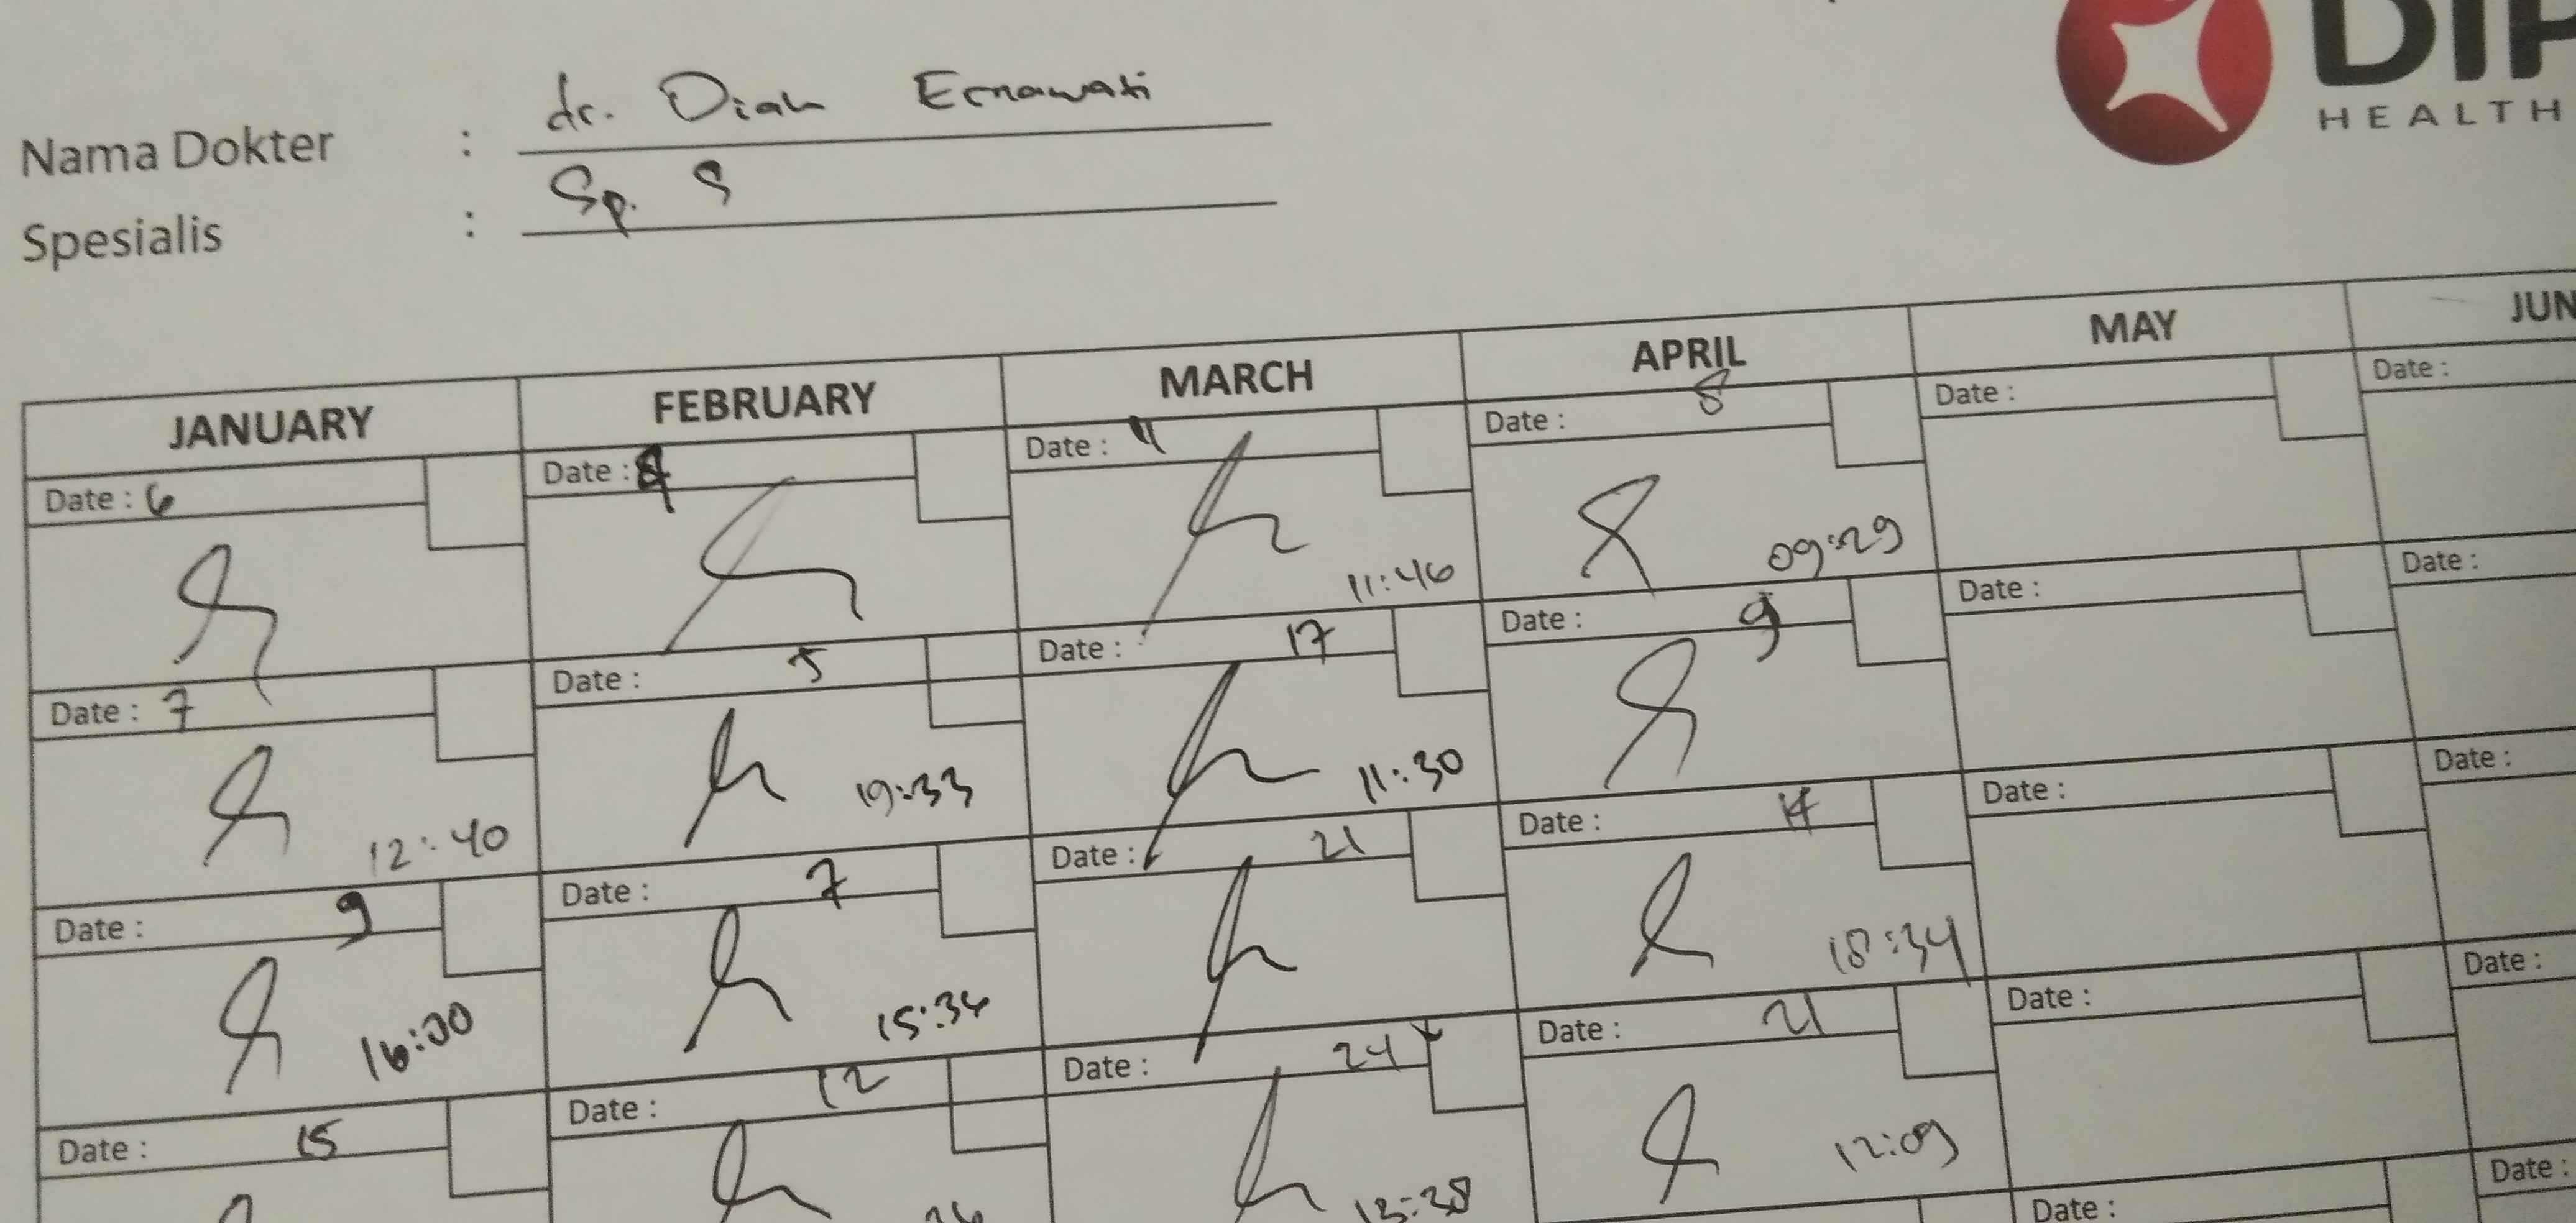 DIP
HEALTH
Nama Dokter : dr. Diah Ernawati
Spesialis : Sp. S
JANUARY FEBRUARY MARCH APRIL MAY JUN
Date : 6 Date : 4 Date : 11 Date : 8 Date : Date :
11:46 09:29
Date : 7 Date : 5 Date : 17 Date : 9 Date : Date :
12:40 19:33 11:30
Date : 9 Date : 7 Date : 21 Date : 14 Date : Date :
16:00 15:34 18:34
Date : 15 Date : 12 Date : 24 Date : 21 Date : Date :
13:38 12:09
Date : Date :